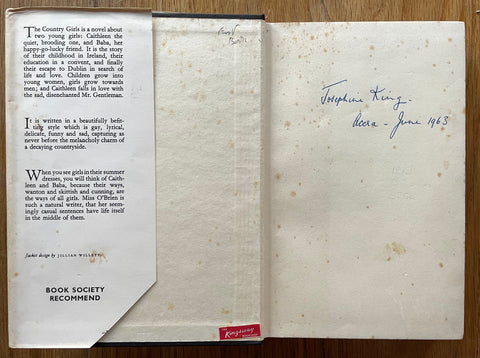 The Country Girls is a novel about
two young girls: Caithleen the
quiet, brooding one, and Baba, her
happy-go-lucky friend. It is the story
of their childhood in Ireland, their
education in a convent, and finally
their escape to Dublin in search of
life and love. Children grow into
young women, girls grow towards
men; and Caithleen falls in love with
the sad, disenchanted Mr. Gentleman.
It is written in a beautifully befit-
ting style which is gay, lyrical,
delicate, funny and sad, capturing as
never before the melancholy charm of
a decaying countryside.
When you see girls in their summer
dresses, you will think of Caith-
leen and Baba, because their ways,
wanton and skittish and cunning, are
the ways of all girls. Miss O'Brien is
such a natural writer, that her seem-
ingly casual sentences have life itself
in the middle of them.
Jacket design by JILLIAN WILLETT
BOOK SOCIETY
RECOMMEND
Josephine King.
Accra - June 1963
Kingsway